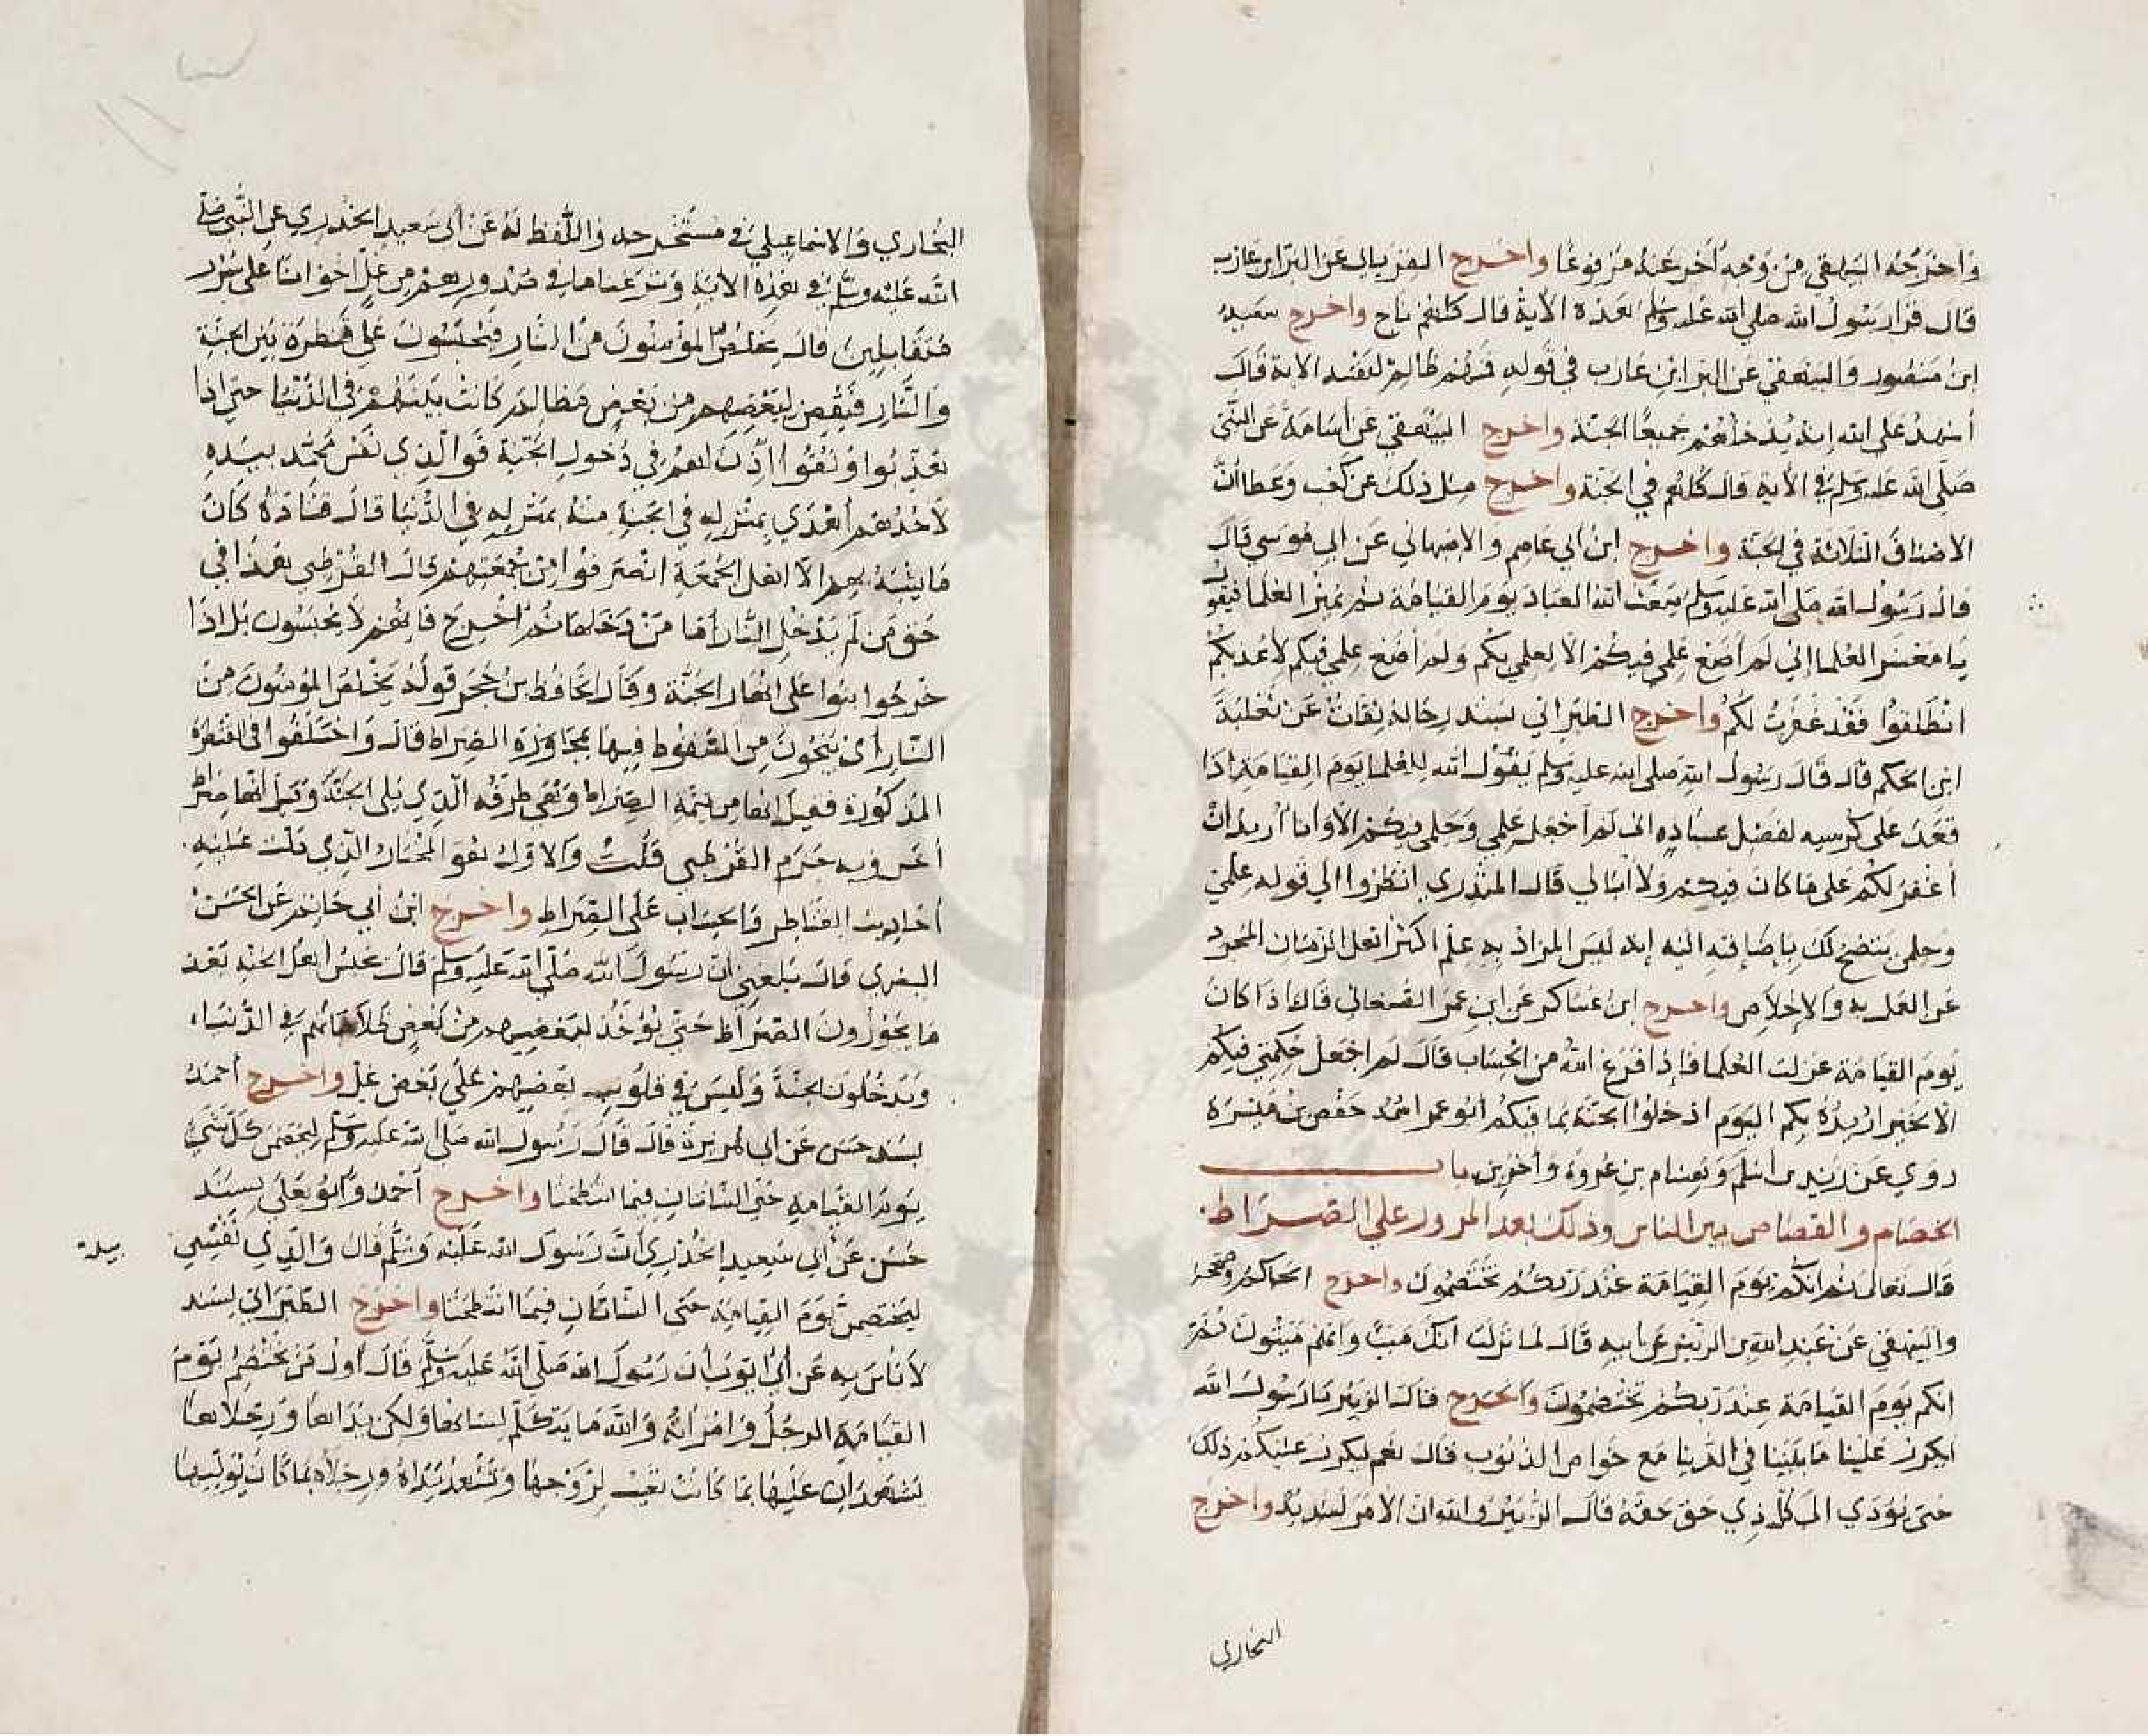 واخرجه البيهقي من وجه اخر عنه مرفوعا واخرج الفريابي عن البرا ابن عازب
قال قرا رسول الله صلي الله عليه وسلم هذه الاية قال كلهم ناج واخرج سعيد
ابن منصور والبيهقي عن البرا ابن عازب في قوله فمنهم ظالم لنفسه الاية قال
أشهد على الله انه يدخلهم جميعًا الجنة واخرج البيهقي عن أسامة عن النبي
صلى الله عليه وسلم في الأية قال كلهم في الجنة واخرج مثل ذلك عن كعب وعطا ان
الاصناف الثلاثة في الجنة واخرج ابن ابي عاصم والاصبهاني عن ابي موسي قال
قال رسول الله صلى الله عليه وسلم يبعث الله العباد يوم القيامة ثم يميز العلما فيقول
يا معشر العلما اني لم أضع علمي فيكم الا لعلمي بكم ولم أضع علمي فيكم لأعذبكم
انطلقوا فقد غفرت لكم واخرج الطبراني بسند رجاله ثقات عن ثعلبة
ابن الحكم قال قال رسول الله صلى الله عليه وسلم يقول الله للعلما يوم القيامة اذا
قعد على كرسيه لفصل عباده اني لم أجعل علمي وحلمي فيكم الا وانا أريد ان
أغفر لكم على ما كان فيكم ولا أبالي قال المنذري انظروا الي قوله علمي
وحلمي يتضح لك باضافته اليه انه ليس المراد به علم اكثر اهل الزمان المجرد
عن العمل به والإخلاص واخرج ابن عساكر عن ابن عمر الصنعاني قال اذا كان
يوم القيامة عزلت العلما فاذا فرغ الله من الحساب قال لم اجعل حكمتي فيكم
الا لخير اريده بكم اليوم ادخلوا الجنة بما فيكم أبو عمر اسمه حفص بن ميسرة
روي عن زيد بن اسلم وهشام بن عروة واخرين باب
الخصام والقصاص بين الناس وذلك بعد المرور على الصراط
قال تعالى ثم انكم يوم القيامة عند ربكم تختصمون واخرج الحاكم وصححه
والبيهقي عن عبد الله بن الزبير عن ابيه قال لما نزلت انك ميت وانهم ميتون ثم
انكم يوم القيامة عند ربكم تختصمون واخرج قال الزبير يا رسول الله
ايكرر علينا ما بيننا في الدنيا مع خواص الذنوب قال نعم ليكررن عليكم ذلك
حتى يؤدي الى كل ذي حق حقه قال الزبير والله ان الأمر لشديد واخرج
البخاري
البخاري والاسماعيلي في مستخرجه واللفظ له عن أبي سعيد الخدري عن النبي صلى
الله عليه وسلم في هذه الاية ونزعنا ما في صدورهم من غل اخوانا على سرر
متقابلين قال يخلص المؤمنون من النار فيحبسون على قنطرة بين الجنة
والنار فيقص لبعضهم من بعض مظالم كانت بينهم في الدنيا حتى اذا
هذبوا ونقوا أذن لهم في دخول الجنة فوالذي نفس محمد بيده
لاحدهم أهدي بمنزله في الجنة منه بمنزله في الدنيا قال قتادة كان
ما يشبه بهم الا اهل الجمعة انصرفوا من جمعتهم قال القرطبي هذا في
حق من لم يدخل النار أما من دخلها ثم اخرج فانهم لا يحبسون بل اذا
خرجوا بثوا على انهار الجنة وقال الحافظ بن حجر قوله يخلص المؤمنون من
النار أي ينجون من السقوط فيها بمجاوزة الصراط قال واختلفوا في القنطرة
المذكورة فقيل انها من تتمة الصراط وهي طرفه الذي يلي الجنة وقيل انها صراط
أخر وبه جزم القرطبي قلت والاول هو المختار الذي دلت عليه
أحاديث القناطر والحساب على الصراط واخرج ابن أبي حاتم عن الحسن
البصري قال بلغني ان رسول الله صلى الله عليه وسلم قال يحبس اهل الجنة بعد
ما يجوزون الصراط حتى يؤخذ لبعضهم من بعض ظلاماتهم في الدنيا
ويدخلون الجنة وليس في قلوب بعضهم على بعض غل واخرج أحمد
بسند حسن عن ابي هريرة قال قال رسول الله صلى الله عليه وسلم ليختصمن كل شيء
يوم القيامة حتى الشاتان فيما انتطحتا واخرج أحمد وأبو يعلي بسند
حسن عن أبي سعيد الخدري أن رسول الله عليه وسلم قال والذي نفسي
ليختصمن يوم القيامة حتى الشاتان فيما انتطحتا واخرج الطبراني بسند
لا بأس به عن أبي ايوب أن رسول الله صلى الله عليه وسلم قال أول من يختصم يوم
القيامة الرجل وامرأته والله ما يتكلم لسانها ولكن يداها ورجلاها
يشهدان عليها بما كانت تعيب لزوجها وتشهد يداه ورجلاه بما كان يوليها